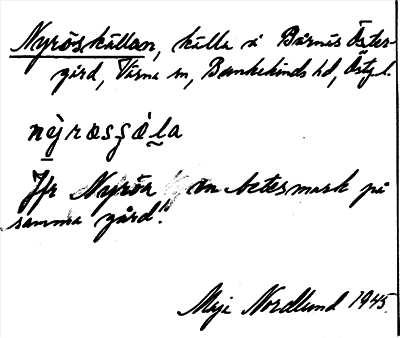 Nyröskällan, källa å Bärnis Öster-
gård, Värna sn, Bankekinds hd, Östg.
nỳrøsçǻla
Jfr Nyröa "en betesmark på
samma gård."
Maj Nordlund 1945.